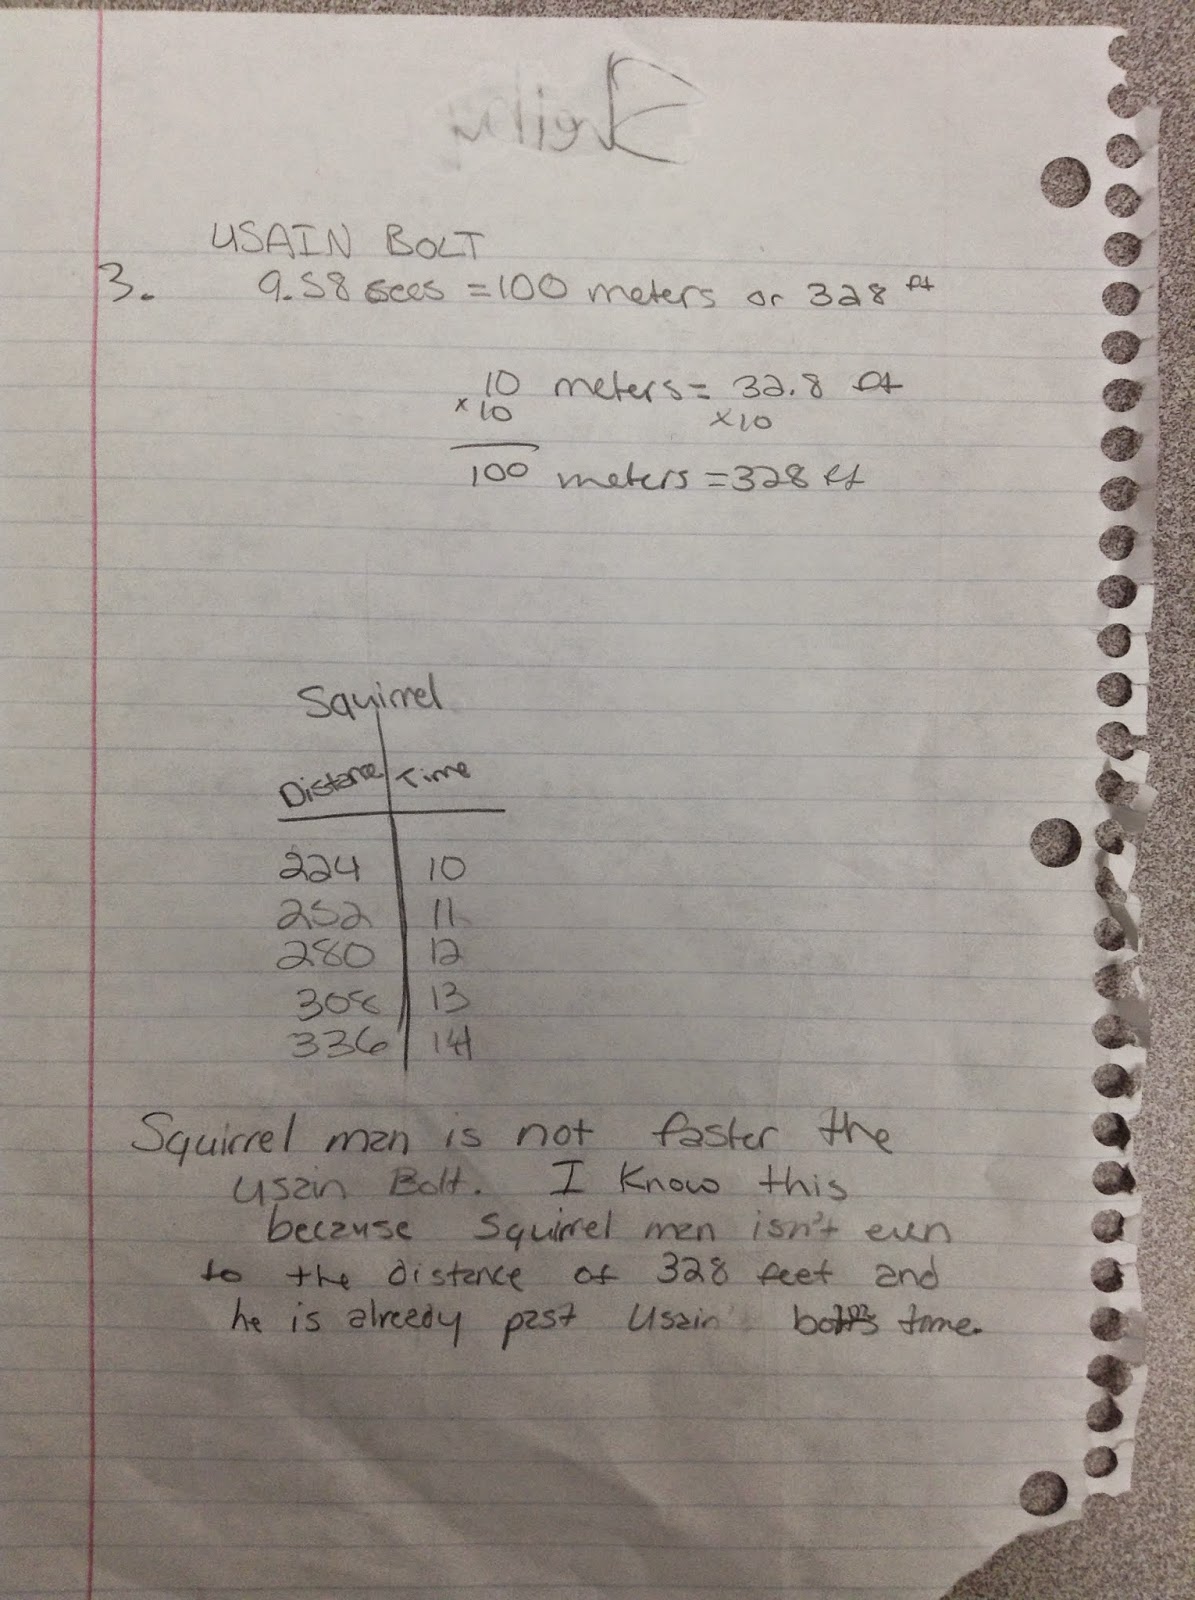 USAIN BOLT
3. 9.58 secs = 100 meters or 328 ft
10 meters = 32.8 ft
x 10 x10
100 meters = 328 ft
Squirrel
Distance Time
224 10
252 11
280 12
308 13
336 14
Squirrel man is not faster the
Usain Bolt. I know this
because Squirrel man isn't even
to the distance of 328 feet and
he is already past Usain time.